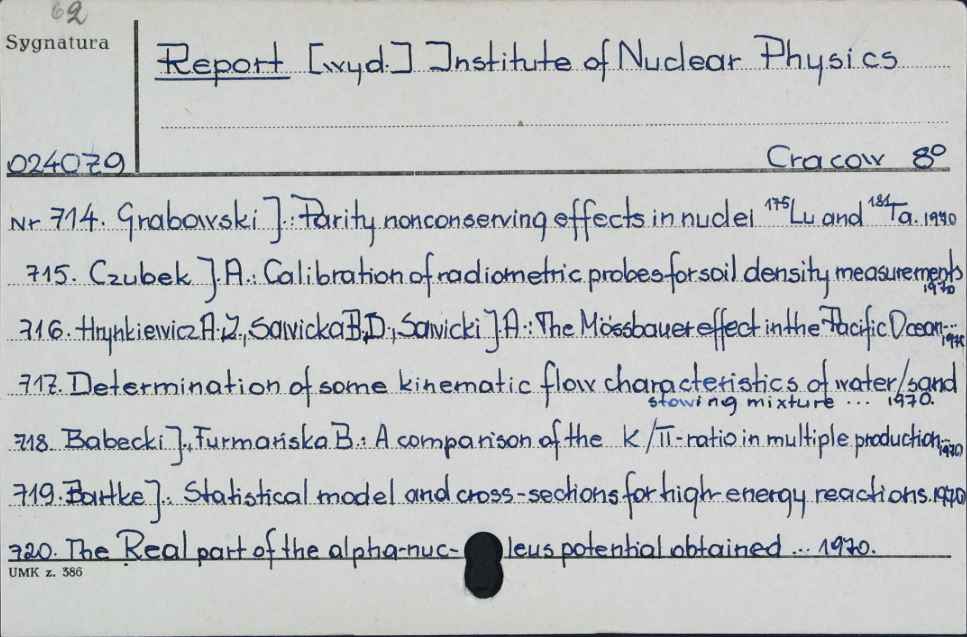 62
Sygnatura
Report [wyd.] Institute of Nuclear Physics
024079
Cracow 8°
Nr 714. Grabowski J.: Parity nonconserving effects in nuclei ¹⁷⁵Lu and ¹⁸¹Ta. 1970
715. Czubek J.A.: Calibration of radiometric probes for soil density measurements 1970
716. Hrynkiewicz A.Z., Sawicka B.D., Sawicki J.A.: The Mössbauer effect in the Pacific Ocean... 1970
717. Determination of some kinematic flow characteristics of water/sand
stowing mixture ... 1970.
718. Babecki J., Furmańska B.: A comparison of the K/π-ratio in multiple production... 1970
719. Bartke J.: Statistical model and cross-sections for high energy reactions. 1970
720. The Real part of the alpha-nuc- leus potential obtained ... 1970.
UMK z. 386